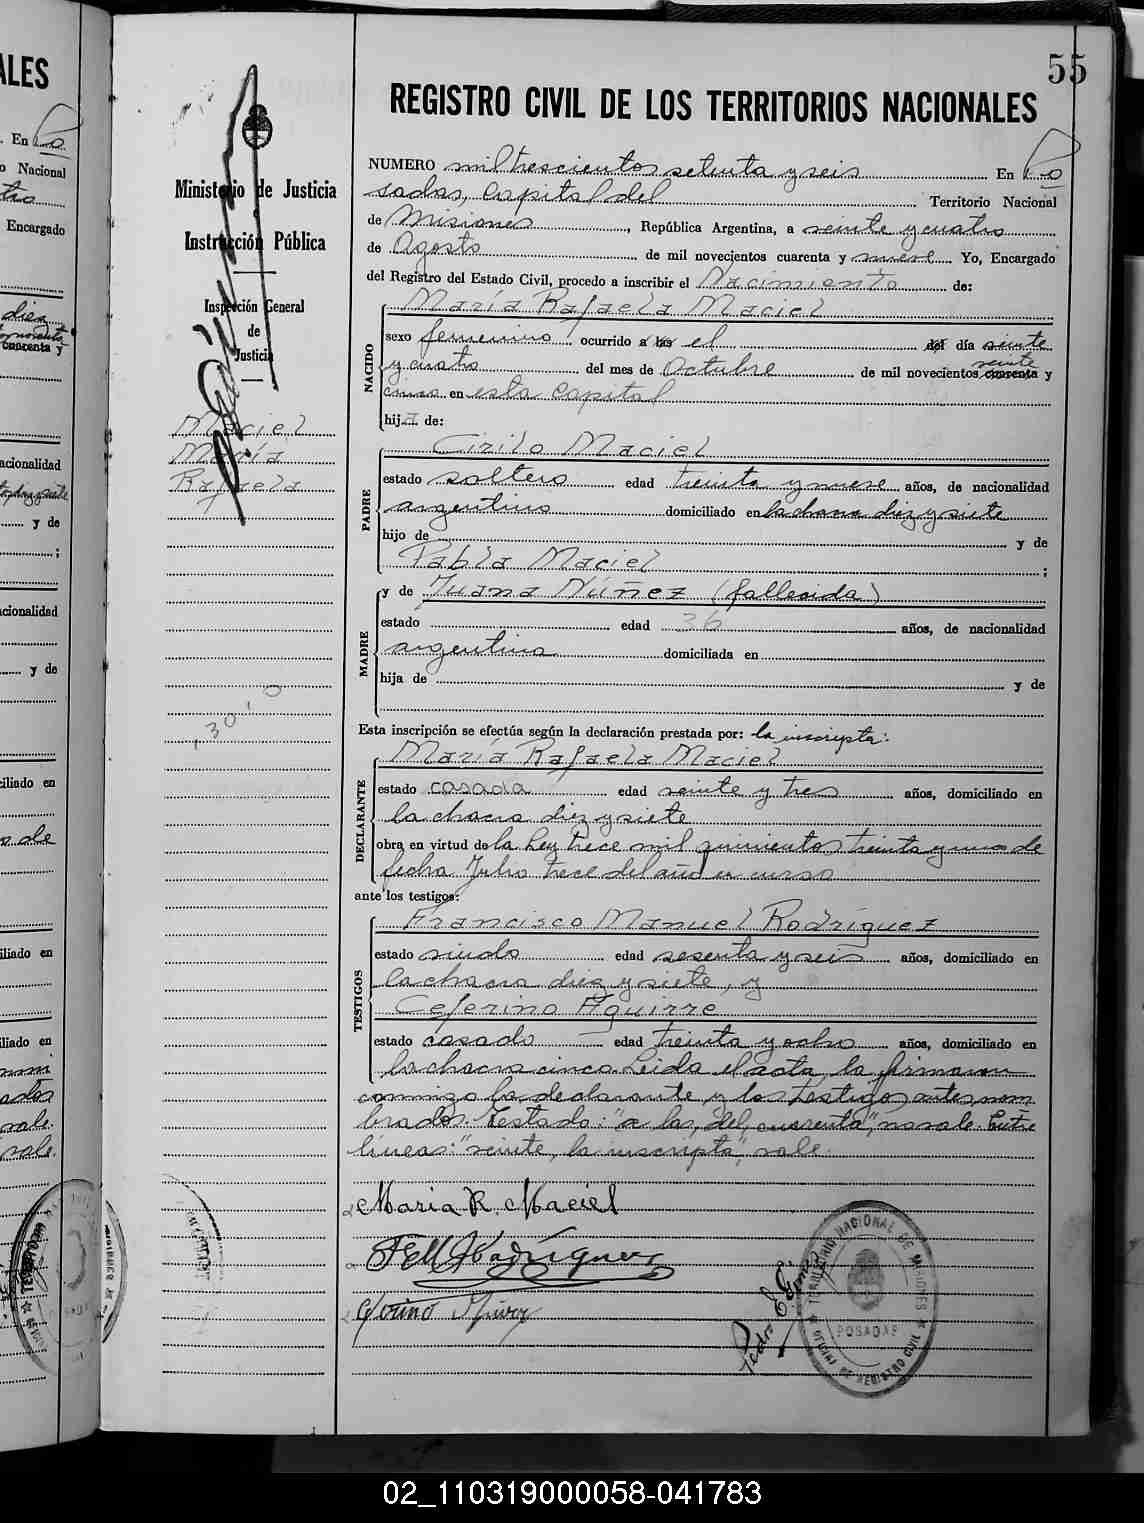 55
REGISTRO CIVIL DE LOS TERRITORIOS NACIONALES
Ministerio de Justicia
Instrucción Pública
Inspección General
de
Justicia
Maciel
María
Rafaela
NUMERO mil trescientos setenta y seis En Po
sadas, capital del Territorio Nacional
de Misiones, República Argentina, a veinte y cuatro
de Agosto de mil novecientos cuarenta y nueve Yo, Encargado
del Registro del Estado Civil, procedo a inscribir el Nacimiento de:
NACIDO
María Rafaela Maciel
sexo femenino ocurrido a las el del día veinte
veinte
y cuatro del mes de Octubre de mil novecientos cuarenta y
cinco en esta capital
hija de:
PADRE
Cirilo Maciel
estado soltero edad treinta y nueve años, de nacionalidad
argentino domiciliado en la chacra diez y siete
hijo de y de
Pabla Maciel ;
MADRE
y de Juana Núñez (fallecida)
estado edad 36 años, de nacionalidad
argentina domiciliada en
hija de y de
Esta inscripción se efectúa según la declaración prestada por: la inscripta:
DECLARANTE
María Rafaela Maciel
estado casada edad veinte y tres años, domiciliado en
la chacra diez y siete
obra en virtud de la Ley trece mil quinientos treinta y uno de
fecha Julio trece del año en curso
ante los testigos:
TESTIGOS
Francisco Manuel Rodríguez
estado viudo edad sesenta y seis años, domiciliado en
la chacra diez y siete, y
Ceferino Aguirre
estado casado edad treinta y ocho años, domiciliado en
la chacra cinco. Leida el acta, la firmaron
conmigo la declarante y los testigos antes nom
brados. Testado: "a las, del, cuarenta", no vale. Entre
líneas: "veinte, la inscripta", vale.
Maria R. Maciel
Pedro E. Gimenez
TERRITORIO NACIONAL DE MISIONES
POSADAS
OFICINA DE REGISTRO CIVIL
02_110319000058-041783